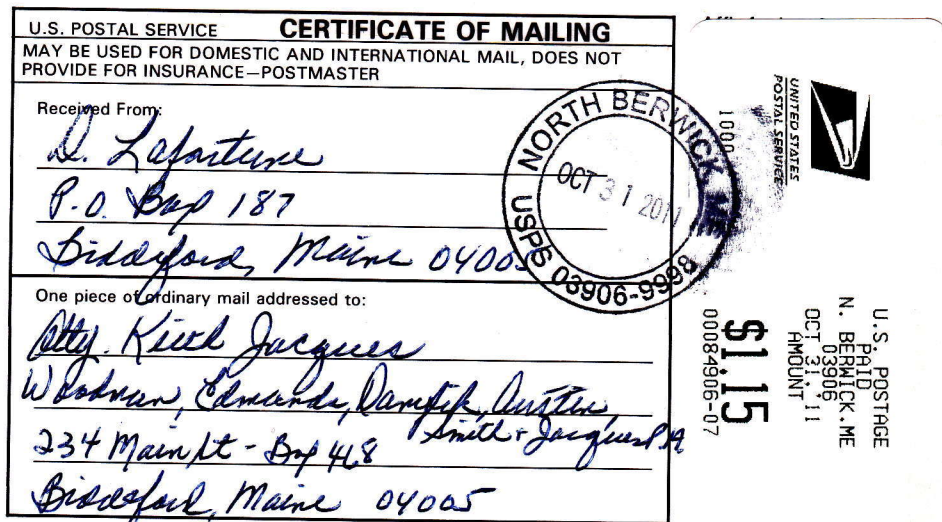 U.S. POSTAL SERVICE CERTIFICATE OF MAILING
MAY BE USED FOR DOMESTIC AND INTERNATIONAL MAIL, DOES NOT
PROVIDE FOR INSURANCE—POSTMASTER
Received From:
D. Lafortune
P.O. Box 187
Biddeford, Maine 04005
One piece of ordinary mail addressed to:
Atty. Keith Jacques
Woodman, Edmands, Danylik, Austin,
Smith + Jacques P.A
234 Main St - Box 468
Biddeford, Maine 04005
NORTH BERWICK ME
OCT 31 2011
USPS 03906-9998
UNITED STATES
POSTAL SERVICE
1000
U.S. POSTAGE
PAID
N. BERWICK.ME
03906
OCT 31, 11
AMOUNT
$1.15
00084906-07